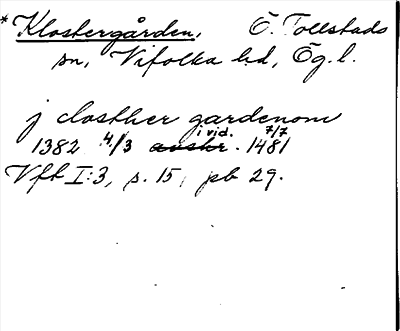 * Klostergården, Ö. Tollstads
sn, Vifolka hd, Ög. l.
j closther gardenom
1382 4/3 avskr. i vid. 7/7 1481
Vft I:3, s. 15, pb 29.